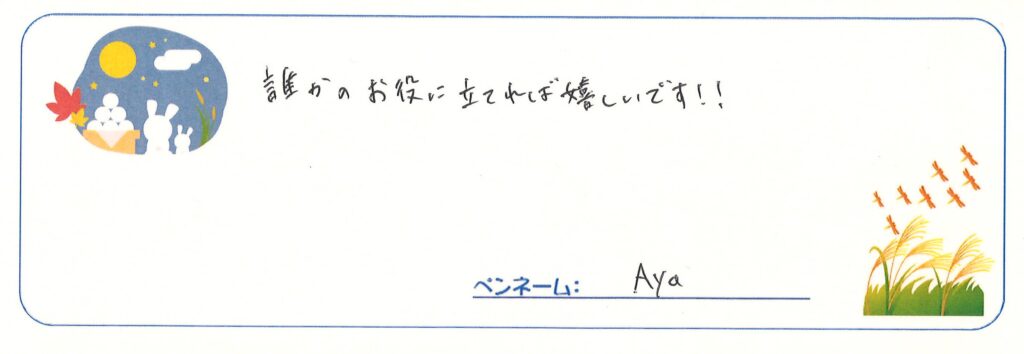 誰かのお役に立てれば嬉しいです!!
ペンネーム: Aya